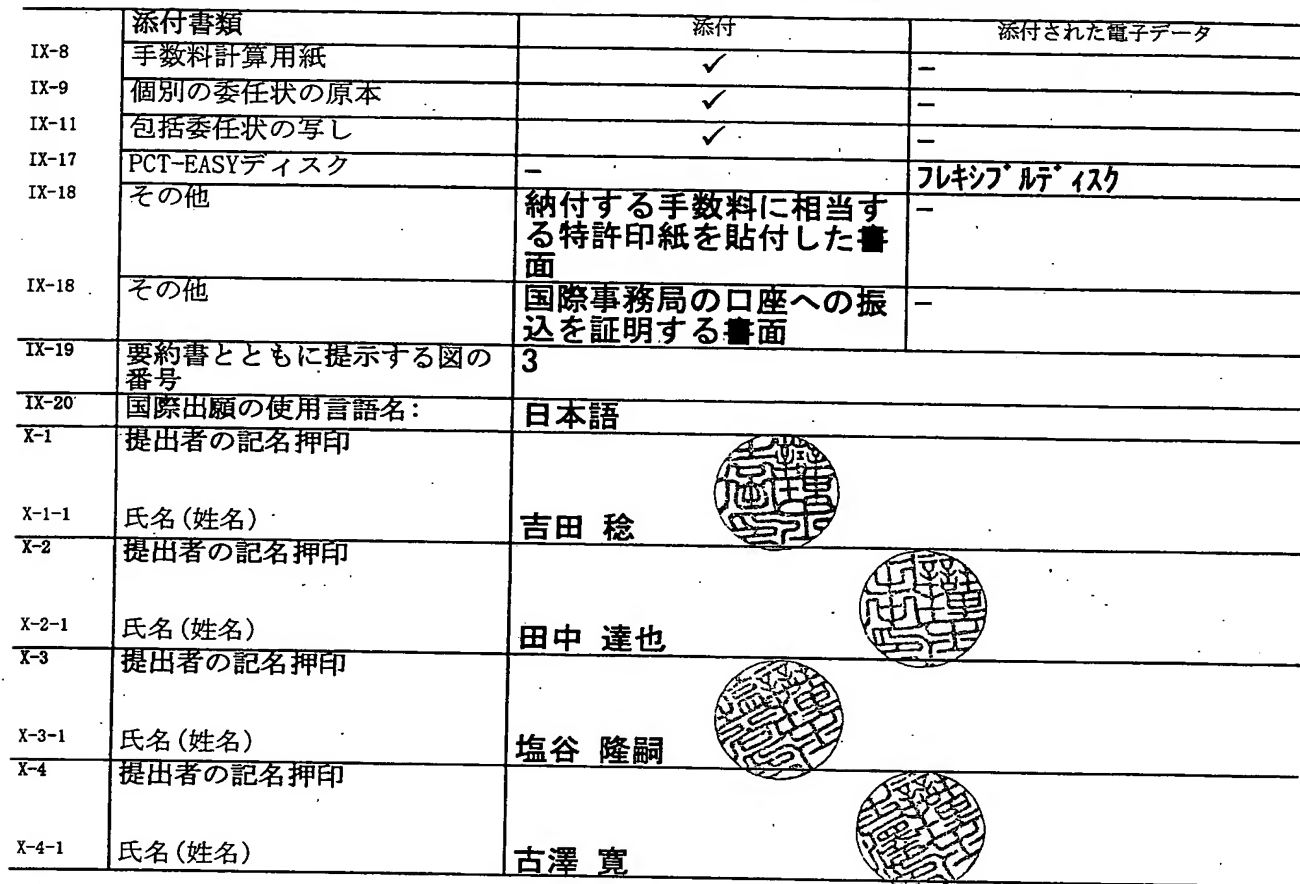 添付書類 添付 添付された電子データ
IX-8 手数料計算用紙 ✓ −
IX-9 個別の委任状の原本 ✓ −
IX-11 包括委任状の写し ✓ −
IX-17 PCT-EASYディスク − フレキシブルディスク
IX-18 その他 納付する手数料に相当す −
る特許印紙を貼付した書
面
IX-18 その他 国際事務局の口座への振 −
込を証明する書面
IX-19 要約書とともに提示する図の 3
番号
IX-20 国際出願の使用言語名: 日本語
X-1 提出者の記名押印
X-1-1 氏名(姓名) 吉田 稔
X-2 提出者の記名押印
X-2-1 氏名(姓名) 田中 達也
X-3 提出者の記名押印
X-3-1 氏名(姓名) 塩谷 隆嗣
X-4 提出者の記名押印
X-4-1 氏名(姓名) 古澤 寛